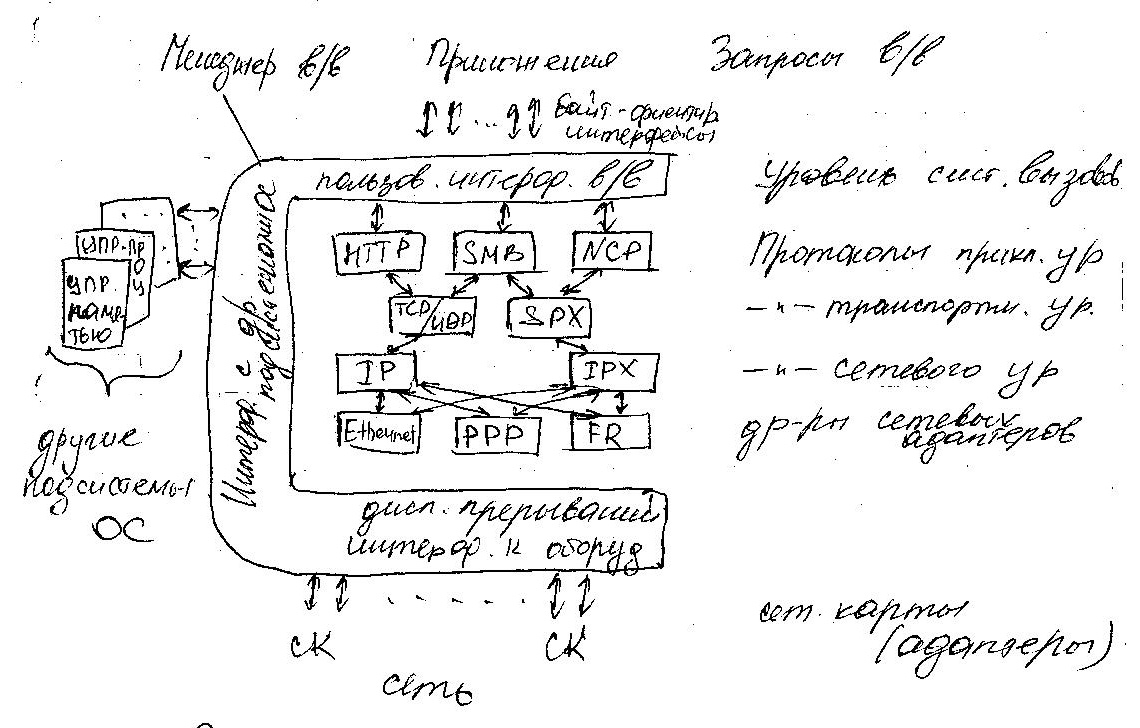 Менеджер в/в Приложения Запросы в/в
байт-ориентир.
интерфейсы
пользов. интерф. в/в
Уровень сист. вызовов
Интерф. с др
подсистемами ОС
упр. про
ц
упр.
памя-
тью
другие
подсистемы
ОС
HTTP SMB NCP
Протоколы прикл. ур
TCP/UDP SPX
—"— транспортн. ур.
IP IPX
—"— сетевого ур
Ethernet PPP FR
др-ры сетевых
адаптеров
дисп. прерываний
интерф. к оборуд
СК СК
сет. карты
(адаптеры)
сеть